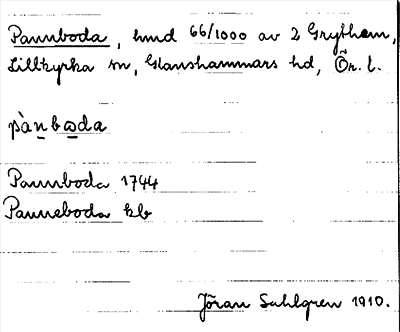 Pannboda, hmd 66/1000 av 2 Grythem,
Lillkyrka sn, Glanshammars hd, Ör. l.
pànbωda
Pannboda 1744
Panneboda kb
Jöran Sahlgren 1910.